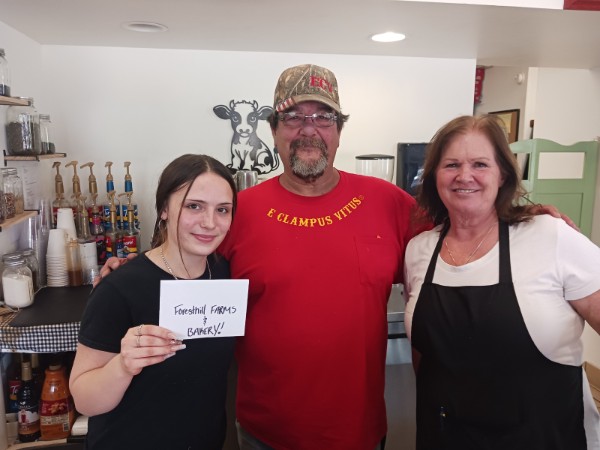 ECV
E CLAMPUS VITUS
Foresthill FARMS
&
BAKERY!!